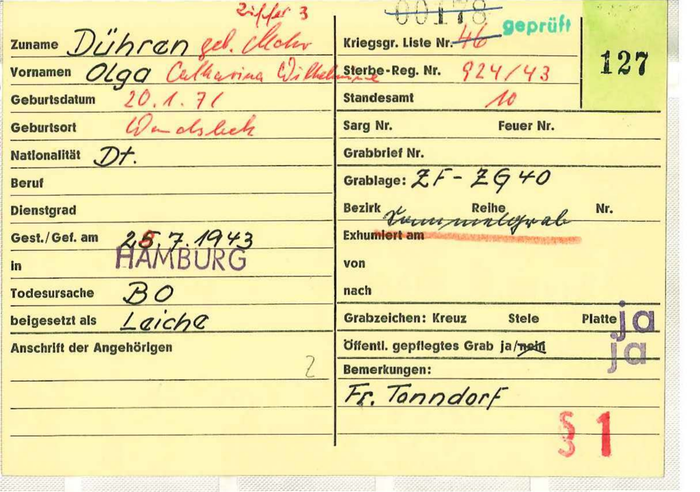 Ziffer 3
00178
geprüft
127
Zuname Dühren geb. Mohr
Vornamen Olga Catharina Wilhelmine
Geburtsdatum 20.1.71
Geburtsort Wandsbek
Nationalität Dt.
Beruf
Dienstgrad
Gest./Gef. am 28.7.1943
in HAMBURG
Todesursache BO
beigesetzt als Leiche
Anschrift der Angehörigen
2
Kriegsgr. Liste Nr. 46
Sterbe-Reg. Nr. 924/43
Standesamt 10
Sarg Nr. Feuer Nr.
Grabbrief Nr.
Grablage: ZF-ZG40
Bezirk Reihe Nr.
Sammelgrab
Exhumiert am
von
nach
Grabzeichen: Kreuz Stele Platte ja
Öffentl. gepflegtes Grab ja/nein ja
Bemerkungen:
Fr. Tonndorf
§ 1